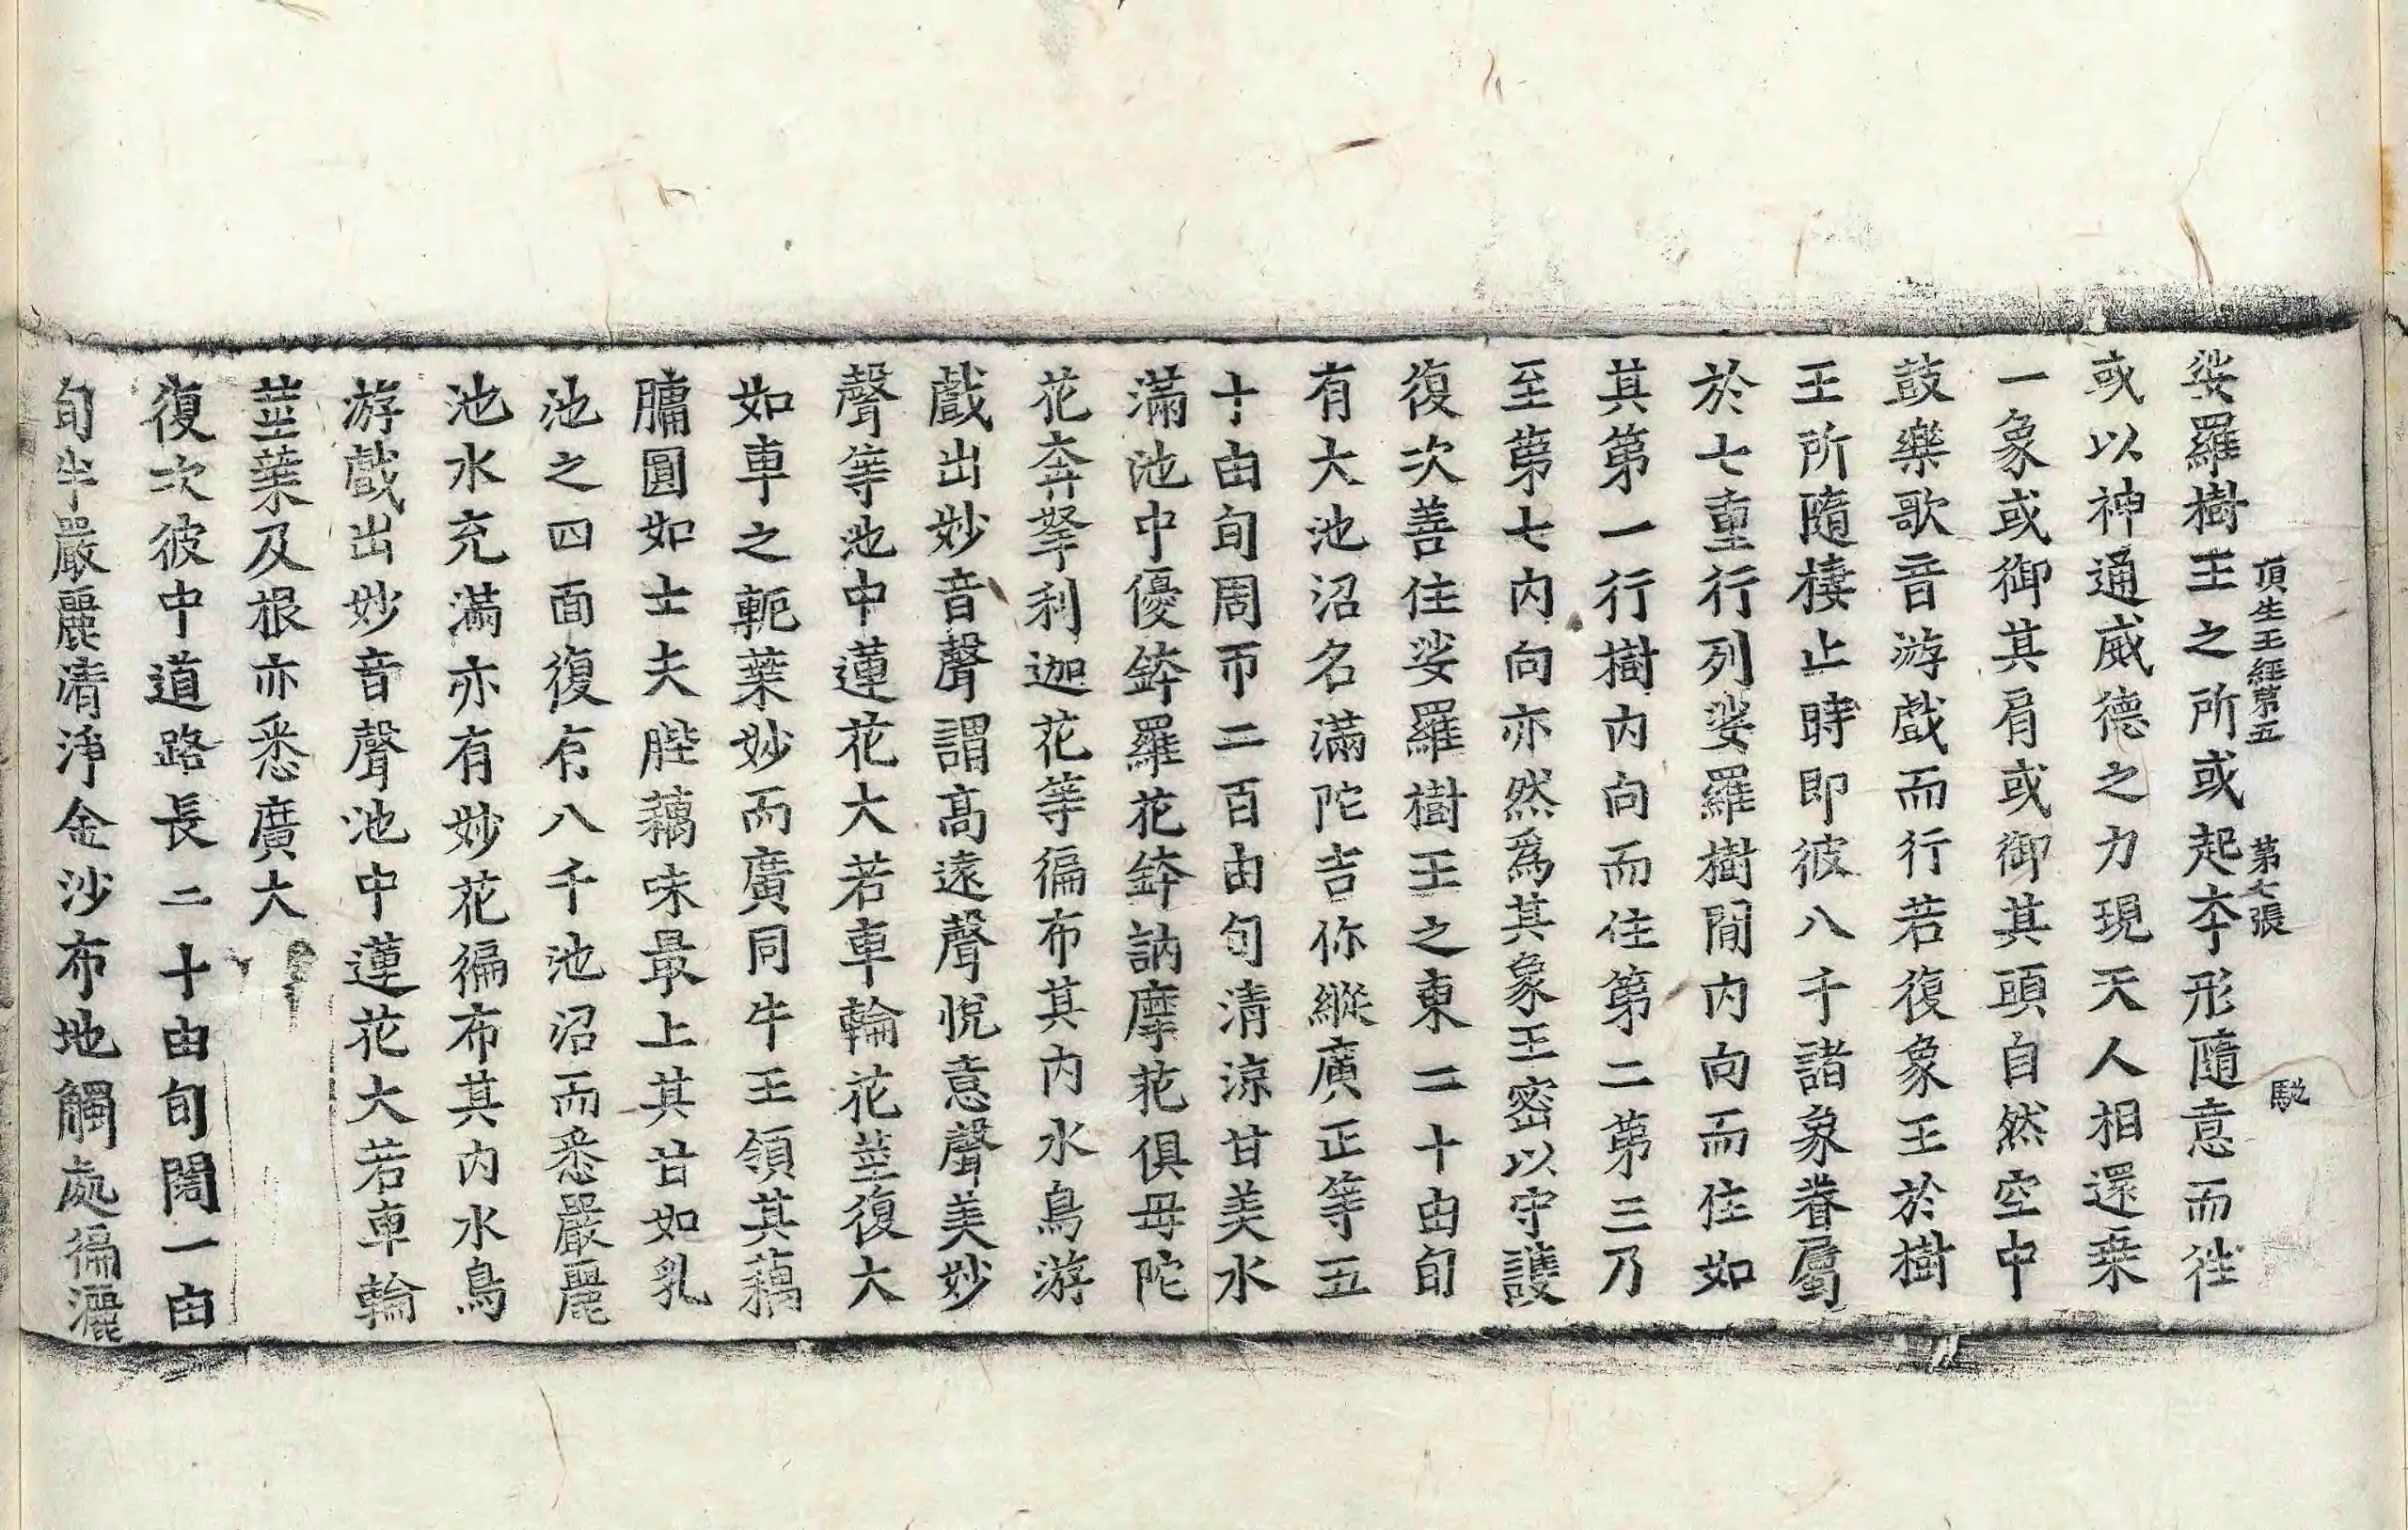 頂生王經第五 第七張 馳
娑羅樹王之所或起本形隨意而徃
或以神通威德之力現天人相還乗
一象或御其肩或御其頭自然空中
鼓樂歌音游戲而行若復象王於樹
王所隨棲止時即彼八千諸象眷屬
於七重行列娑羅樹閒内向而住如
其第一行樹内向而住第二第三乃
至第七内向亦然爲其象王密以守護
復次善住娑羅樹王之東二十由旬
有大池沼名滿陀吉你縱廣正等五
十由旬周帀二百由旬清涼甘美水
滿池中優鉢羅花鉢訥摩花俱毋陀
花奔拏利迦花等徧布其内水鳥游
戲出妙音聲謂高遠聲悅意聲美妙
聲等池中蓮花大若車輪花莖復大
如車之軛葉妙而廣同牛王領其藕
膅圓如士夫䏶藕味最上其甘如乳
池之四面復有八千池沼而悉嚴麗
池水充滿亦有妙花徧布其内水鳥
游戲出妙音聲池中蓮花大若車輪
莖葉及根亦悉廣大
復次彼中道路長二十由旬闊一由
旬半嚴麗清淨金沙布地觸處徧灑